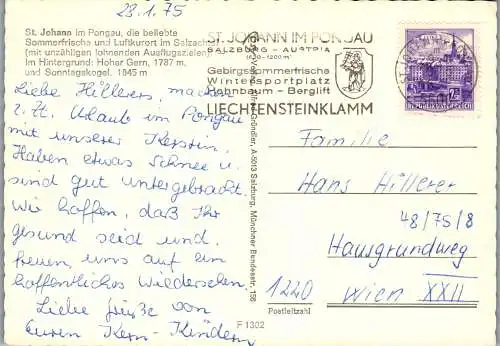 28.1.75
St. Johann im Pongau, die beliebte
Sommerfrische und Luftkurort im Salzachtal
(mit unzähligen lohnenden Ausflugszielen)
Im Hintergrund: Hoher Gern, 1787 m.
und Sonntagskogel. 1845 m
Liebe Hillerers, machen
z. Zt. Urlaub im Pongau
mit unserer Kerstin.
Haben etwas Schnee u.
sind gut untergebracht.
Wir hoffen, daß Ihr
gesund seid und
freuen uns auf ein
hoffentliches Wiedersehen.
Liebe Grüße von
Euren Kern-Kindern
ST. JOHANN IM PONGAU
SALZBURG - AUSTRIA
Gebirgssommerfrische
Wintersportplatz
Hahnbaum - Berglift
LIECHTENSTEINKLAMM
A-5013 Salzburg, Münchner Bundesstr. 156
F 1302
REPUBLIK ÖSTERREICH
Familie
Hans Hillerer
48/75/8
Hausgrundweg
1220 Wien XXII
Postleitzahl